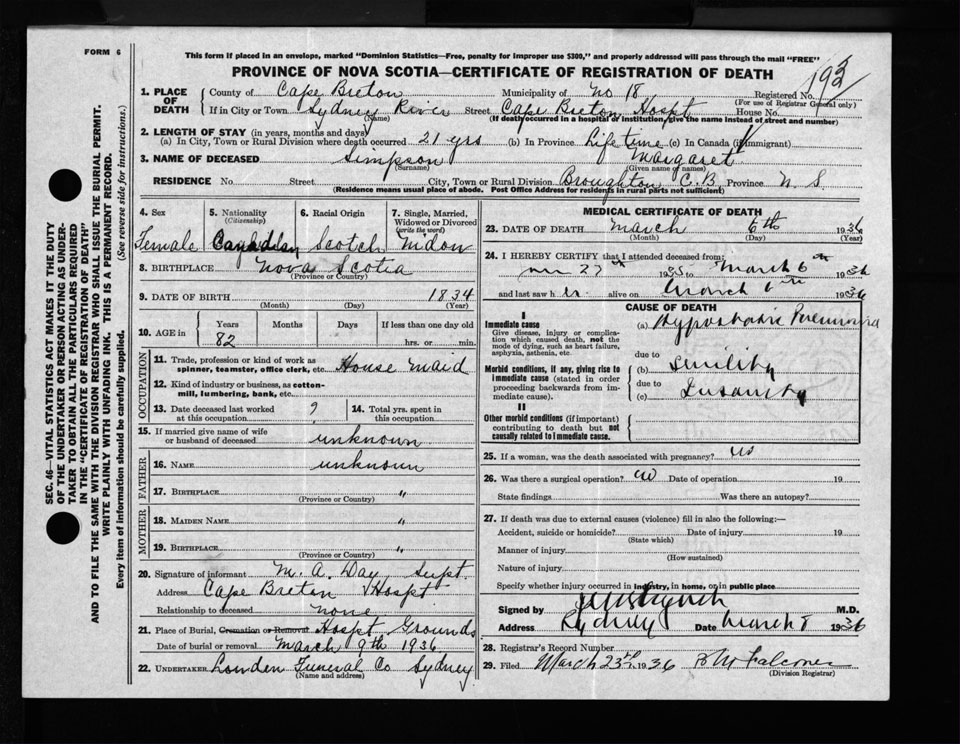 FORM 6
This form if placed in an envelope, marked "Dominion Statistics—Free, penalty for improper use $300," and properly addressed will pass through the mail "FREE"
PROVINCE OF NOVA SCOTIA—CERTIFICATE OF REGISTRATION OF DEATH
SEC. 46—VITAL STATISTICS ACT MAKES IT THE DUTY
OF THE UNDERTAKER OR PERSON ACTING AS UNDER-
TAKER TO OBTAIN ALL THE PARTICULARS REQUIRED
IN THE "CERTIFICATE OF REGISTRATION OF DEATH"
AND TO FILE THE SAME WITH THE DIVISION REGISTRAR WHO SHALL ISSUE THE BURIAL PERMIT.
WRITE PLAINLY WITH UNFADING INK. THIS IS A PERMANENT RECORD.
Every item of information should be carefully supplied. (See reverse side for instructions.)
1. PLACE OF DEATH
County of Cape Breton Municipality of No 18 Registered No.
(For use of Registrar General only)
If in City or Town Sydney River Street Cape Breton Hospt House No.
(Name) (If death occurred in a hospital or institution, give the name instead of street and number)
2. LENGTH OF STAY (in years, months and days)
(a) In City, Town or Rural Division where death occurred 21 yrs (b) In Province Life time (c) In Canada (if immigrant)
3. NAME OF DECEASED Simpson Margaret
(Surname) (Given name or names)
RESIDENCE No. Street City, Town or Rural Division Broughton C.B. Province N. S
(Residence means usual place of abode. Post Office Address for residents in rural parts not sufficient)
4. Sex
Female
5. Nationality
(Citizenship)
Canadian
6. Racial Origin
Scotch
7. Single, Married, Widowed or Divorced
(write the word)
8. BIRTHPLACE Nova Scotia
(Province or Country)
9. DATE OF BIRTH 1834
(Month) (Day) (Year)
10. AGE in Years Months Days If less than one day old
82 hrs. or min.
OCCUPATION
11. Trade, profession or kind of work as spinner, teamster, office clerk, etc. House Maid
12. Kind of industry or business, as cotton-mill, lumbering, bank, etc.
13. Date deceased last worked at this occupation ?
14. Total yrs. spent in this occupation
15. If married give name of wife or husband of deceased unknown
FATHER
16. NAME unknown
17. BIRTHPLACE "
(Province or Country)
MOTHER
18. MAIDEN NAME "
19. BIRTHPLACE "
(Province or Country)
20. Signature of informant M. A. Day Supt.
Address Cape Breton Hospt
Relationship to deceased none
21. Place of Burial, Cremation or Removal Hospt Grounds
Date of burial or removal March 9th 1936
22. UNDERTAKER Funeral Co Sydney
(Name and address)
MEDICAL CERTIFICATE OF DEATH
23. DATE OF DEATH March 6th 1936
(Month) (Day) (Year)
24. I HEREBY CERTIFY that I attended deceased from:
27 1935 to March 6th 1936
and last saw her alive on March 6th 1936
CAUSE OF DEATH
I
Immediate cause
Give disease, injury or complication which caused death, not the mode of dying, such as heart failure, asphyxia, asthenia, etc.
(a) Hypostatic Pneumonia
due to
Morbid conditions, if any, giving rise to immediate cause (stated in order proceeding backwards from immediate cause).
(b) Senility
due to
(c) Insanity
II
Other morbid conditions (if important) contributing to death but not causally related to immediate cause.
25. If a woman, was the death associated with pregnancy? no
26. Was there a surgical operation? no Date of operation 19
State findings Was there an autopsy?
27. If death was due to external causes (violence) fill in also the following:—
Accident, suicide or homicide? Date of injury 19
(State which)
Manner of injury
(How sustained)
Nature of injury
Specify whether injury occurred in industry, in home, or in public place
Signed by M.D.
Address Sydney Date March 8 1936
28. Registrar's Record Number
29. Filed March 23rd 1936 Falconer
(Division Registrar)